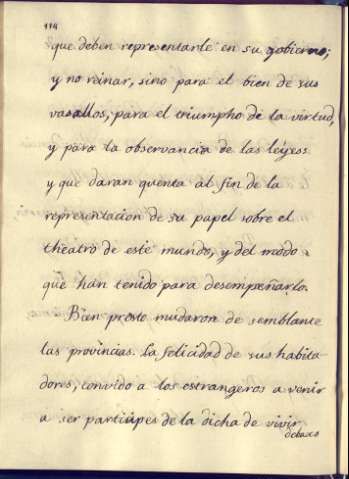 114
que deben representarle en su gobierno;
y no reinar, sino para el bien de sus
vasallos, para el triumpho de la virtud,
y para la observancia de las leyess
y que daran quenta al fin de la
representacion de su papel sobre el
theatro de este mundo, y del modo
que han tenido para desempeñarlo.
Bien presto mudaron de semblante
las provincias. La felicidad de sus habita-
dores, convido a los estrangeros a venir
a ser participes de la dicha de vivir
debaxo